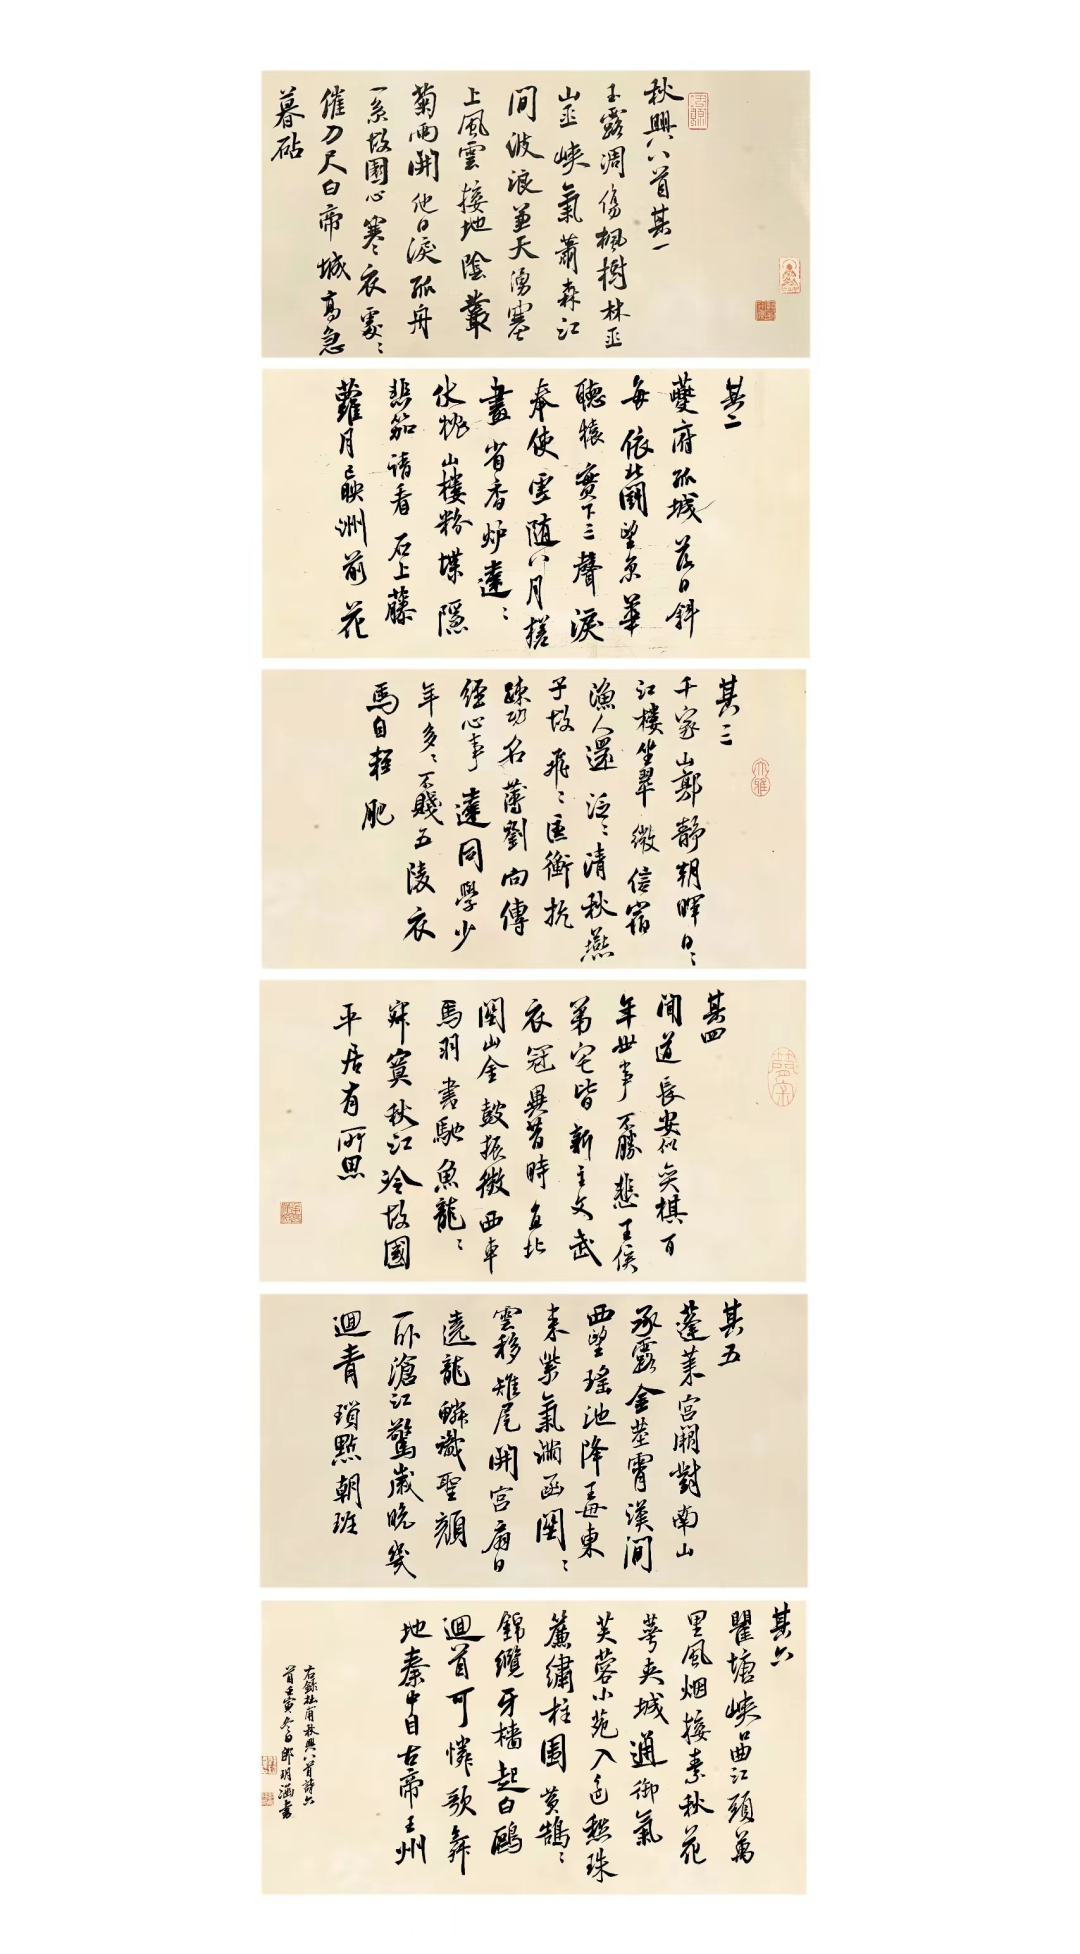 秋興八首其一
玉露凋傷楓樹林巫
山巫峽氣蕭森江
間波浪兼天湧塞
上風雲接地陰叢
菊兩開他日淚孤舟
一系故園心寒〻衣處〻
催刀尺白帝城高急
暮砧
其二
夔府孤城落日斜
每依北鬥望京華
聽猿實下三聲淚
奉使虛隨八月槎
畫省香炉違〻
伏枕山樓粉堞隱
悲笳請看石上藤
蘿月已映洲前花
其三
千家山郭靜朝暉日〻
江樓坐翠微信宿
漁人還泛〻清秋燕
子故飛〻匡衡抗
疏功名薄劉向傳
經心事違同學少
年多〻不賤五陵衣
馬自輕肥
其四
聞道長安似奕棋百
年世事不勝悲王侯
第宅皆新主文武
衣冠異昔時直北
關山金鼓振徵西車
馬羽書馳魚龍〻
寂寞秋江冷故國
平居有所思
其五
蓬萊宮闕對南山
承露金莖霄漢間
西望瑤池降王母東
來紫氣滿函關〻
雲移雉尾開宮扇日
遶龍鱗識聖顏
一臥滄江驚歲晚幾
迴青瑣點朝班
其六
瞿塘峽口曲江頭萬
里風烟接素秋花
萼夾城通御氣
芙蓉小苑入邊愁珠
簾繡柱圍黃鵠〻
錦纜牙檣起白鷗
迴首可憐歌舞
地秦中自古帝王州
右錄杜甫秋興八首詩六
首壬寅冬日郎玥涵書